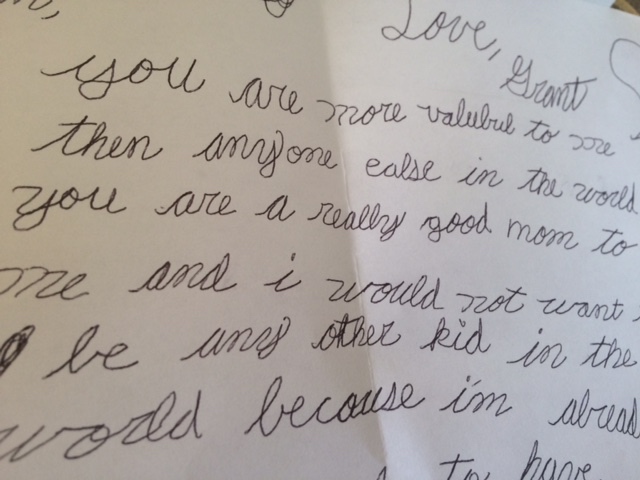 Love,
Grant
you are more valubul to me
then anyone ealse in the world
you are a really good mom to
me and i would not want
be any other kid in the
world because i'm
to have